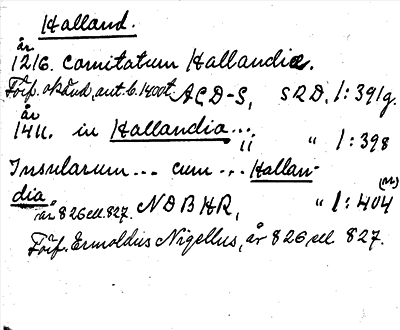 Halland.
år
1216. Comitatum Hallandiæ.
Förf. okänd, ant. b. 1400t. ACD-S, SRD. 1:391g.
år
1411. in Hallandia...; " 1:398
Insularum... cum... Hallan-
(n)
dia år 826 ell. 827. NDBHR, " 1:404
Förf. Ermoldus Nigellus, år 826 ell. 827.